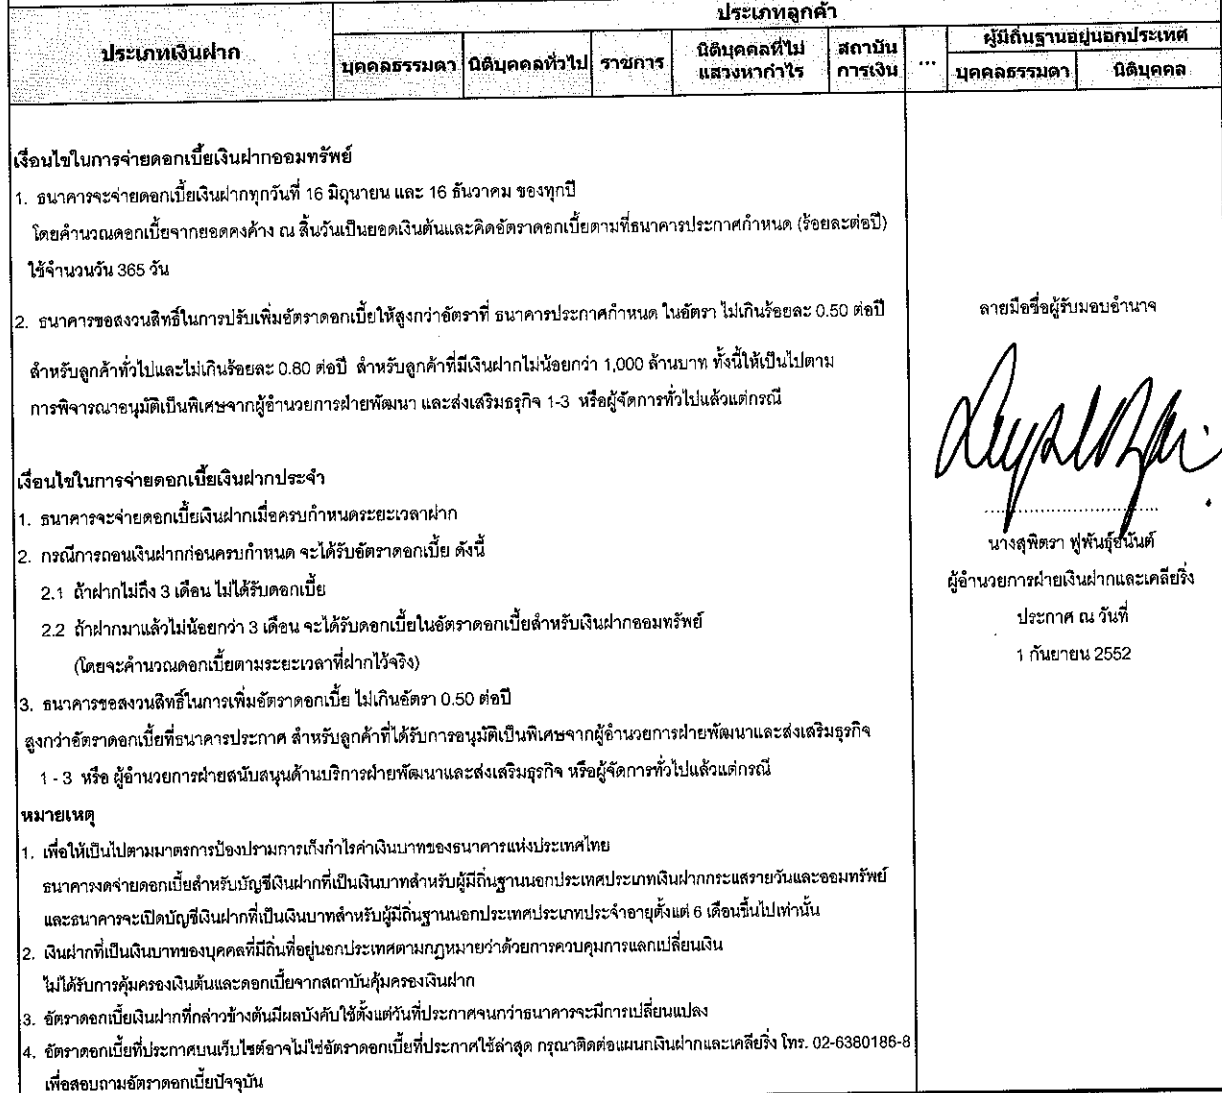 ประเภทลูกค้า
ประเภทเงินฝาก
บุคคลธรรมดา
นิติบุคคลทั่วไป
ราชการ
นิติบุคคลที่ไม่
แสวงหากำไร
สถาบัน
การเงิน
...
ผู้มีถิ่นฐานอยู่นอกประเทศ
บุคคลธรรมดา
นิติบุคคล
เงื่อนไขในการจ่ายดอกเบี้ยเงินฝากออมทรัพย์
1. ธนาคารจะจ่ายดอกเบี้ยเงินฝากทุกวันที่ 16 มิถุนายน และ 16 ธันวาคม ของทุกปี
โดยคำนวณดอกเบี้ยจากยอดคงค้าง ณ สิ้นวันเป็นยอดเงินต้นและคิดอัตราดอกเบี้ยตามที่ธนาคารประกาศกำหนด (ร้อยละต่อปี)
ใช้จำนวนวัน 365 วัน
2. ธนาคารขอสงวนสิทธิ์ในการปรับเพิ่มอัตราดอกเบี้ยให้สูงกว่าอัตราที่ ธนาคารประกาศกำหนด ในอัตรา ไม่เกินร้อยละ 0.50 ต่อปี
สำหรับลูกค้าทั่วไปและไม่เกินร้อยละ 0.80 ต่อปี สำหรับลูกค้าที่มีเงินฝากไม่น้อยกว่า 1,000 ล้านบาท ทั้งนี้ให้เป็นไปตาม
การพิจารณาอนุมัติเป็นพิเศษจากผู้อำนวยการฝ่ายพัฒนา และส่งเสริมธุรกิจ 1-3 หรือผู้จัดการทั่วไปแล้วแต่กรณี
เงื่อนไขในการจ่ายดอกเบี้ยเงินฝากประจำ
1. ธนาคารจะจ่ายดอกเบี้ยเงินฝากเมื่อครบกำหนดระยะเวลาฝาก
2. กรณีการถอนเงินฝากก่อนครบกำหนด จะได้รับอัตราดอกเบี้ย ดังนี้
2.1 ถ้าฝากไม่ถึง 3 เดือน ไม่ได้รับดอกเบี้ย
2.2 ถ้าฝากมาแล้วไม่น้อยกว่า 3 เดือน จะได้รับดอกเบี้ยในอัตราดอกเบี้ยสำหรับเงินฝากออมทรัพย์
(โดยจะคำนวณดอกเบี้ยตามระยะเวลาที่ฝากไว้จริง)
3. ธนาคารขอสงวนสิทธิ์ในการเพิ่มอัตราดอกเบี้ย ไม่เกินอัตรา 0.50 ต่อปี
สูงกว่าอัตราดอกเบี้ยที่ธนาคารประกาศ สำหรับลูกค้าที่ได้รับการอนุมัติเป็นพิเศษจากผู้อำนวยการฝ่ายพัฒนาและส่งเสริมธุรกิจ
1 - 3 หรือ ผู้อำนวยการฝ่ายสนับสนุนด้านบริการฝ่ายพัฒนาและส่งเสริมธุรกิจ หรือผู้จัดการทั่วไปแล้วแต่กรณี
หมายเหตุ
1. เพื่อให้เป็นไปตามมาตรการป้องปรามการเก็งกำไรค่าเงินบาทของธนาคารแห่งประเทศไทย
ธนาคารงดจ่ายดอกเบี้ยสำหรับบัญชีเงินฝากที่เป็นเงินบาทสำหรับผู้มีถิ่นฐานนอกประเทศประเภทเงินฝากกระแสรายวันและออมทรัพย์
และธนาคารจะเปิดบัญชีเงินฝากที่เป็นเงินบาทสำหรับผู้มีถิ่นฐานนอกประเทศประเภทประจำอายุตั้งแต่ 6 เดือนขึ้นไปเท่านั้น
2. เงินฝากที่เป็นเงินบาทของบุคคลที่มีถิ่นที่อยู่นอกประเทศตามกฎหมายว่าด้วยการควบคุมการแลกเปลี่ยนเงิน
ไม่ได้รับการคุ้มครองเงินต้นและดอกเบี้ยจากสถาบันคุ้มครองเงินฝาก
3. อัตราดอกเบี้ยเงินฝากที่กล่าวข้างต้นมีผลบังคับใช้ตั้งแต่วันที่ประกาศจนกว่าธนาคารจะมีการเปลี่ยนแปลง
4. อัตราดอกเบี้ยที่ประกาศบนเว็บไซต์อาจไม่ใช่อัตราดอกเบี้ยที่ประกาศใช้ล่าสุด กรุณาติดต่อแผนกเงินฝากและเคลียริ่ง โทร. 02-6380186-8
เพื่อสอบถามอัตราดอกเบี้ยปัจจุบัน
ลายมือชื่อผู้รับมอบอำนาจ
นางสุพิตรา ฟูพันธุ์อนันต์
ผู้อำนวยการฝ่ายเงินฝากและเคลียริ่ง
ประกาศ ณ วันที่
1 กันยายน 2552